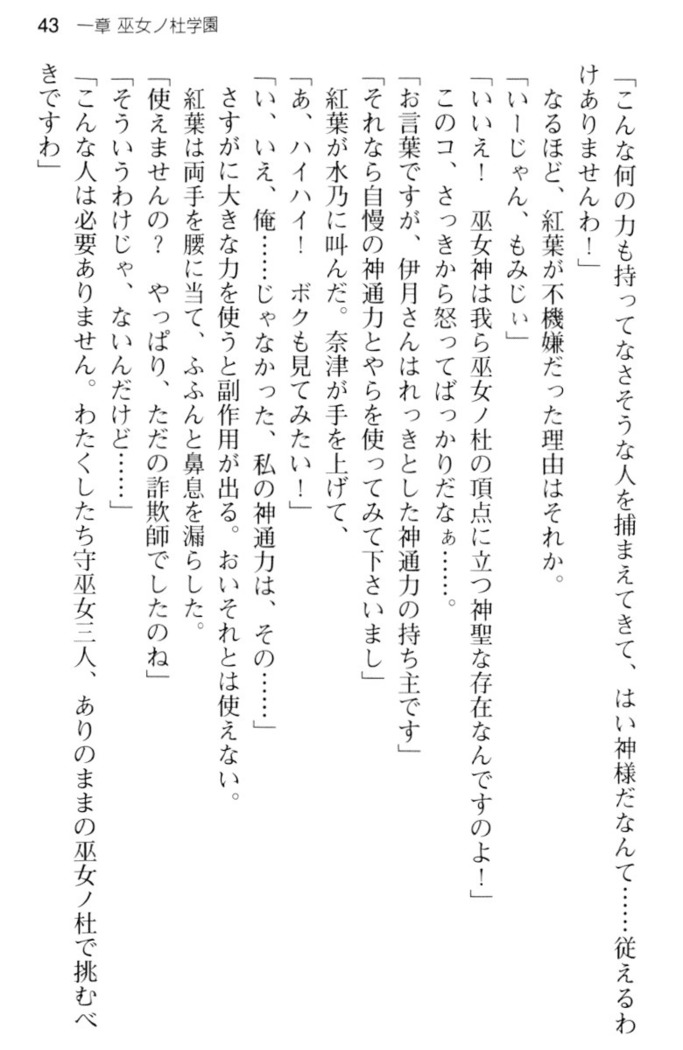 43 一章 巫女ノ杜学園
「こんな何の力も持ってなさそうな人を捕まえてきて、はい神様だなんて……従えるわ
けありませんわ！」
なるほど、紅葉が不機嫌だった理由はそれか。
「いーじゃん、もみじぃ」
「いいえ！　巫女神は我ら巫女ノ杜の頂点に立つ神聖な存在なんですのよ！」
このコ、さっきから怒ってばっかりだなぁ……。
「お言葉ですが、伊月さんはれっきとした神通力の持ち主です」
「それなら自慢の神通力とやらを使ってみて下さいまし」
紅葉が水乃に叫んだ。奈津が手を上げて、
「あ、ハイハイ！　ボクも見てみたい！」
「い、いえ、俺……じゃなかった、私の神通力は、その……」
さすがに大きな力を使うと副作用が出る。おいそれとは使えない。
紅葉は両手を腰に当て、ふふんと鼻息を漏らした。
「使えませんの？　やっぱり、ただの詐欺師でしたのね」
「そういうわけじゃ、ないんだけど……」
「こんな人は必要ありません。わたくしたち守巫女三人、ありのままの巫女ノ杜で挑むべ
きですわ」